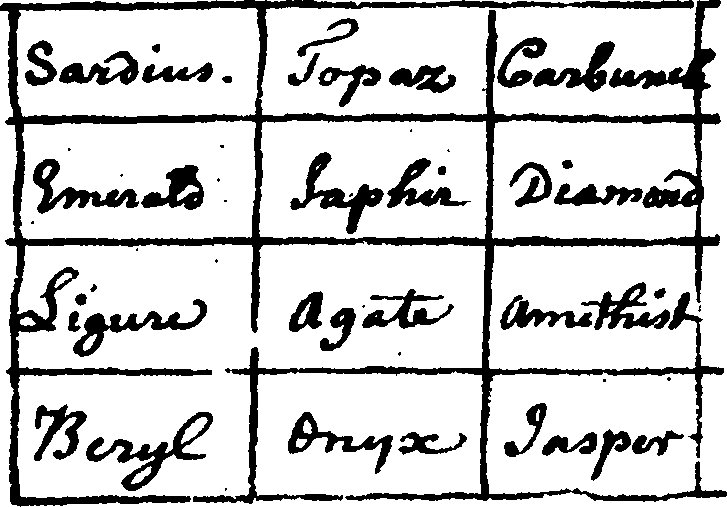 Sardius. Topaz Carbuncle
Emerald Saphir Diamond
Ligure Agate Amethist
Beryl Onyx Jasper